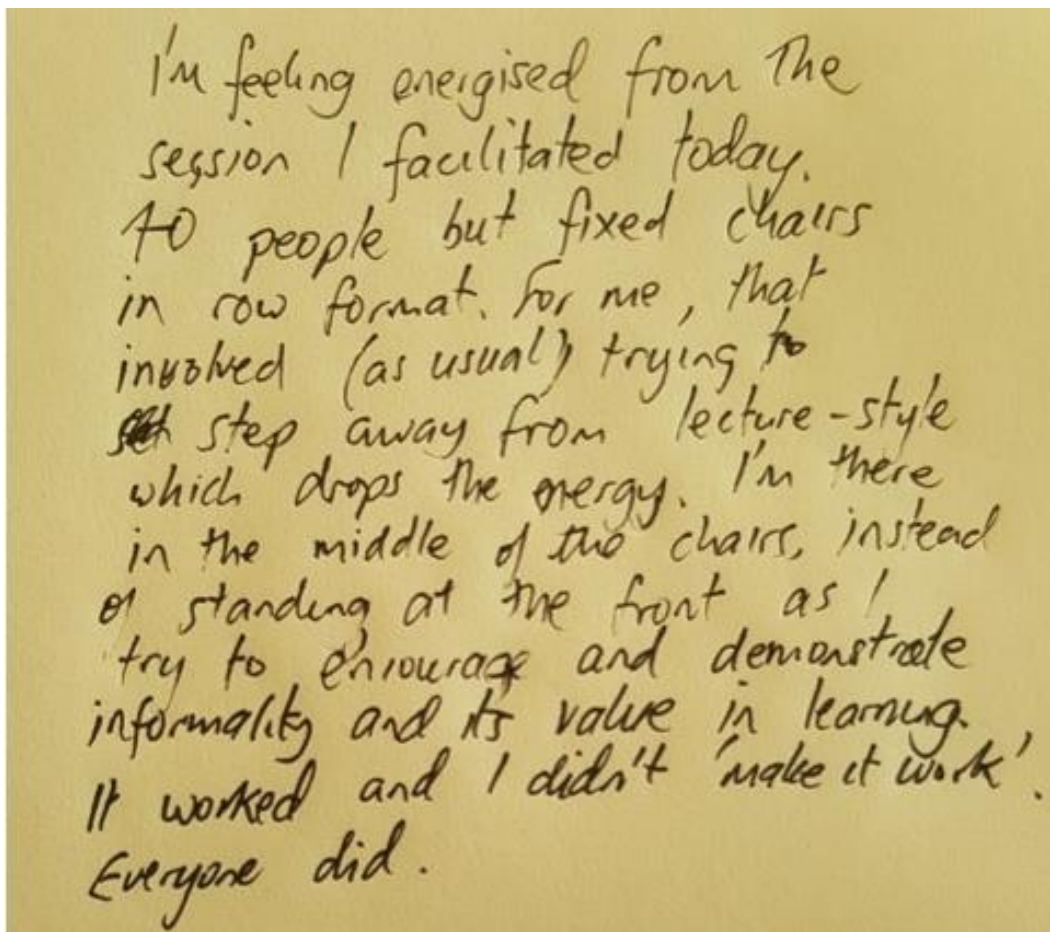 I'm feeling energised from the
session I facilitated today.
40 people but fixed chairs
in row format. For me, that
involved (as usual) trying to
step away from lecture-style
which drops the energy. I'm there
in the middle of the chairs, instead
of standing at the front as I
try to encourage and demonstrate
informality and its value in learning.
It worked and I didn't 'make it work'.
Everyone did.